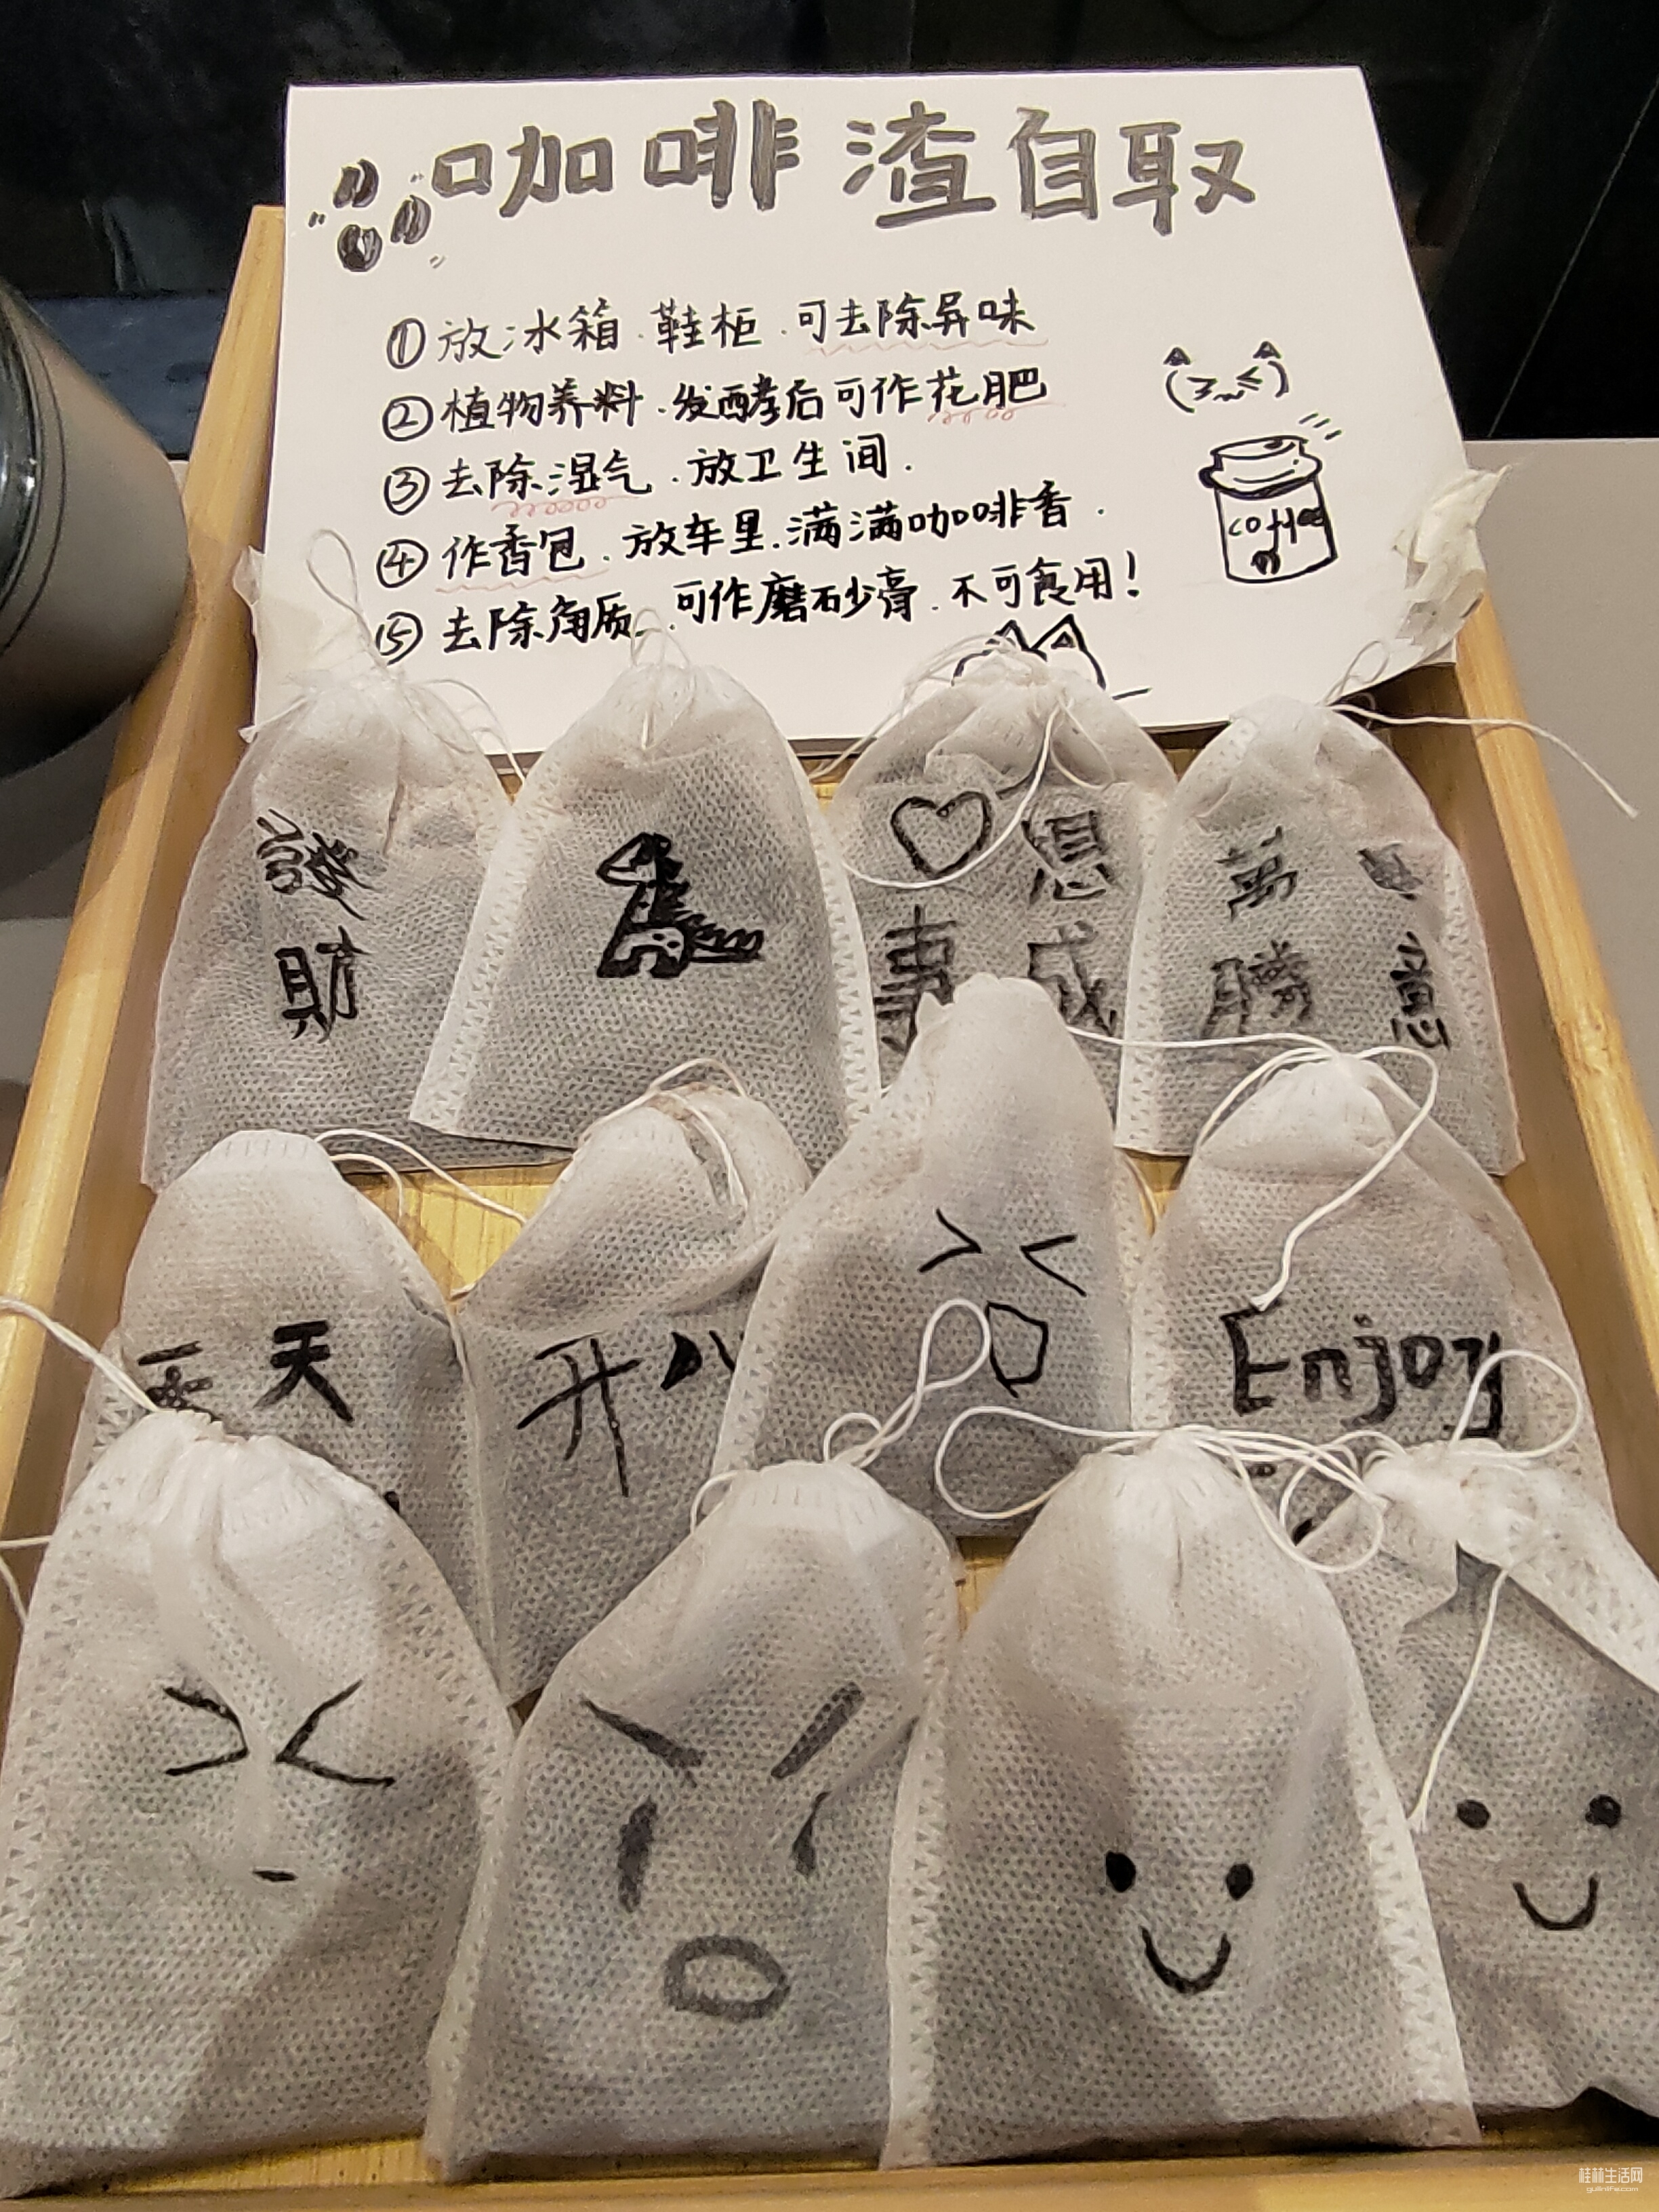 咖啡渣自取
①放冰箱.鞋柜.可去除异味
②植物养料.发酵后可作花肥
③去除湿气.放卫生间.
④作香包.放车里.满满咖啡香.
⑤去除角质.可作磨砂膏.不可食用!
coffee
發財
想
事成
萬
勝意
天天
开心
Enjoy
桂林生活网
guilinlife.com